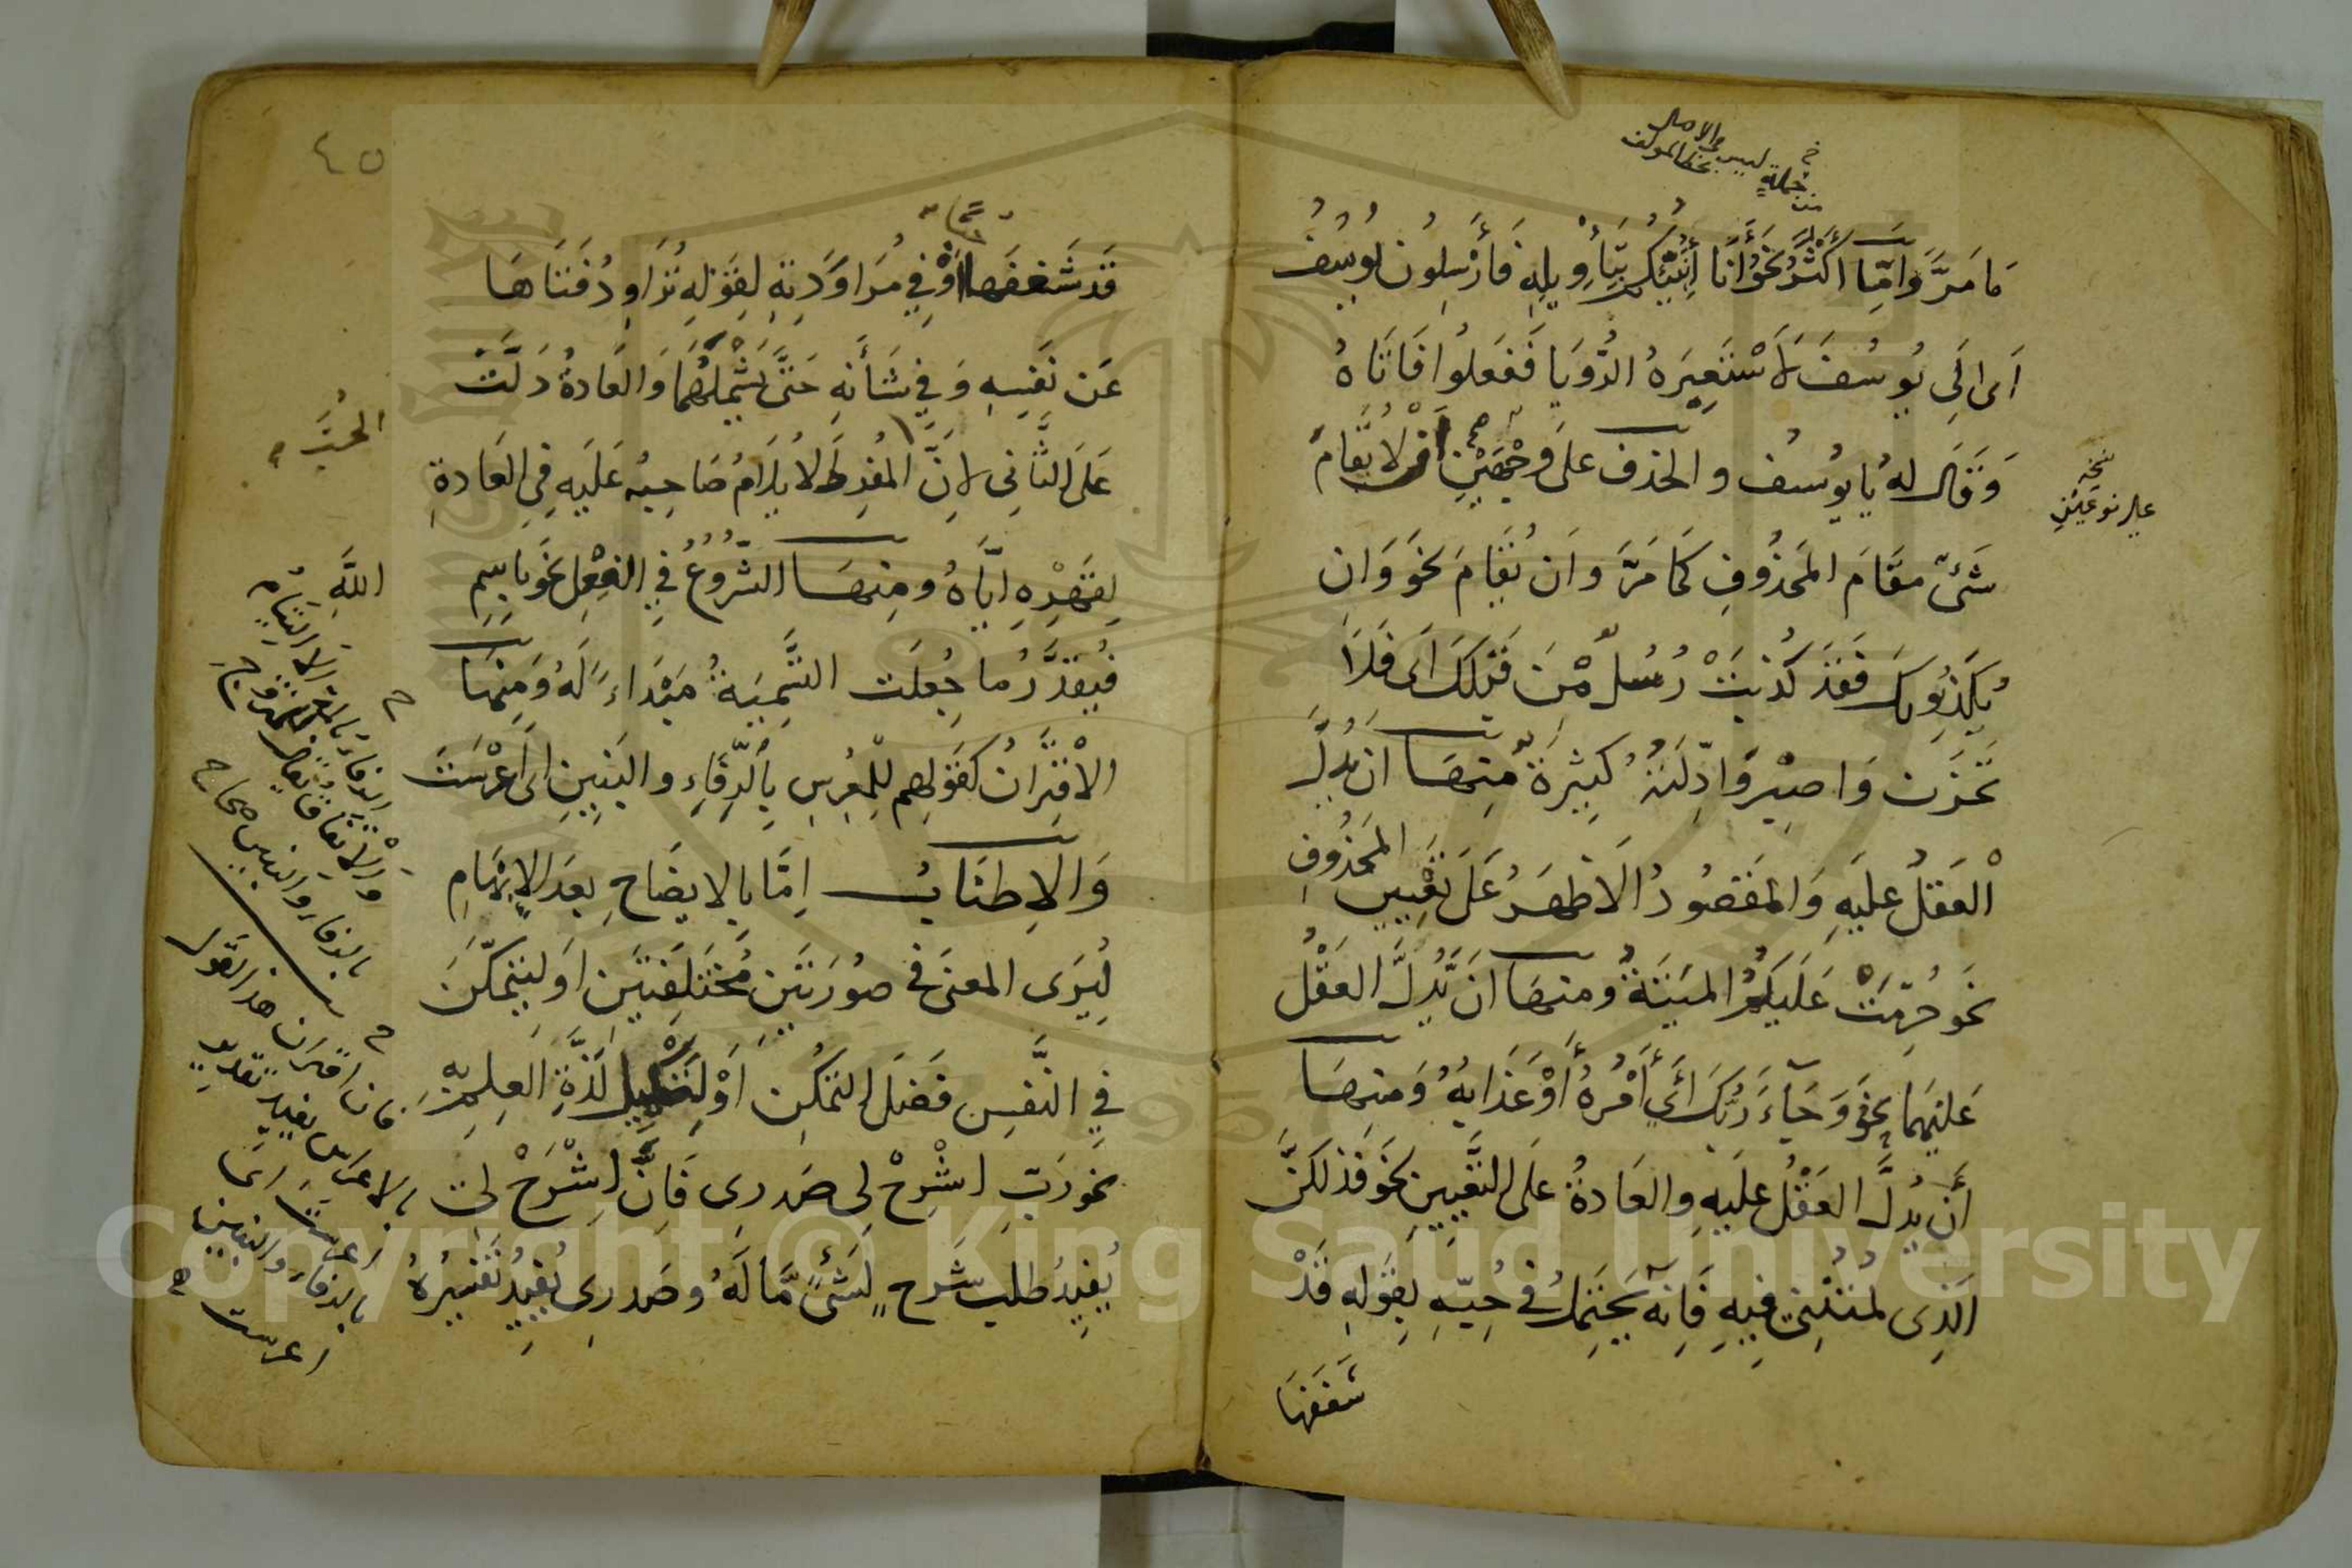 من جملةٍ ليس في الاصل
بخط المولف
مَا مَرَّ وَامَّا اكْثَرُ نَحْوُ أَنَا أُنَبِّئُكُم بِتَأْوِيلِهِ فَأَرْسِلُونِ يُوسُفُ
اَى الَى يُوسُفَ لِاَسْتَعْبِرَهُ الرُّؤيَا فَفَعَلُوا فَاَتَاهُ
وَقَالَ لهُ يَا يوُسُف والحذف عَلَى وَجْهَيْنِ اَنْ لاَ يُقَامَ
نسخه
على نوعين
شَىْءٌ مقَامَ المَحذُوفِ كَمَا مَرَّ وَاَن يُقَامَ نحَو وَان
يُكَذِّبُوكَ فَقَد كُذِّبَتْ رُسُلٌ مِّنْ قَبْلِكَ اَى فَلاَ
تَحْزَن وَاصبِر وَادِلَّتُهُ كَثِيرَةٌ مِنهَا ان يَدُلَّ
الْعَقلُ عَلَيهِ وَالمَقصُودُ الاَظهَرُ عَلَى تَعْيِينِ المَحذُوفِ
نحَو حُرِّمَتْ عَلَيكُمُ المَيتَةُ ومنهَا اَن يَدُلَّ العَقْلُ
عَلَيهِمَا نحو وَجَآءَ رَبُّكَ اَىْ أَمْرُهُ أَوْ عَذَابُهُ وَمنِهَا
أَن يَدُلَّ العَقْلُ عَلَيهِ والعَادَةُ عَلَى التَّعيِينِ نحَو فَذلكُنَّ
الَّذِى لُمتُنَّنِى فِيهِ فَاِنَّه يَحتَمِلُ فى حُبِّهِ لِقَولِهِ قَدْ
شَغَفَهَا
٤٥
قَد شَغَفَهَا حُبًّا اَوْ فِي مُرَاوَدَتِهِ لِقَولِهِ تُرَاوِدُ فَتَاهَا
عَن نَفسِهِ وَفِي شَأنِهِ حَتَّى يَشْمَلَهُمَا وَالعَادةُ دَلَّتْ
عَلَى الثَّانِى لاِنَّ المُفرِطَ لا يُلاَمُ صَاحِبُهُ عَلَيهِ فِي العَادةِ
الحُبَّ
لِقَهْرِهِ ايَّاهُ ومِنهَا الشُّرُوعُ فِي الفِعْلِ نحَو بِاسمِ
اللَّهِ
فيُقَدَّرُ ما جُعِلَت التَّسمِيَةُ مَبدَاءً لَهُ وَمِنهَا
الاْقتِرَانُ كَقَولِهم لِلْمُعرِسِ بِالرِّفَاءِ والبَنِينِ اى اَعْرَسْتَ
الرفاء بالمد الالتيام
والاتفاق يقال للمتزوج
بالرفاء والبنين صحاح
وَالاِطنَابُ اِمَّا بِالايضَاحِ بعدَ الاِبْهَامِ
لِيُرَى المعنَى فى صُورَتَين مُختَلِفَتَين اَو لِيَتَمَكَّنَ
فِي النَّفسِ فَضلَ التمَكُّن اَوْ لِتَكمِيلِ لَذَّةِ العِلمِ بِهِ
نحو رَبِّ اشْرَحْ لِى صَدرِى فَاِنَّ اِشْرَحْ لِى
يُفِيدُ طلبَ شَرحٍ لِشَىْءٍ مَّا لَهُ وصَدرِى يُفِيدُ تَفسِيرَهُ
فان اقتران هذا القول
بالاعراس يفيد تقدير
اعرست اى
بالرفاء والبنين
اعرست